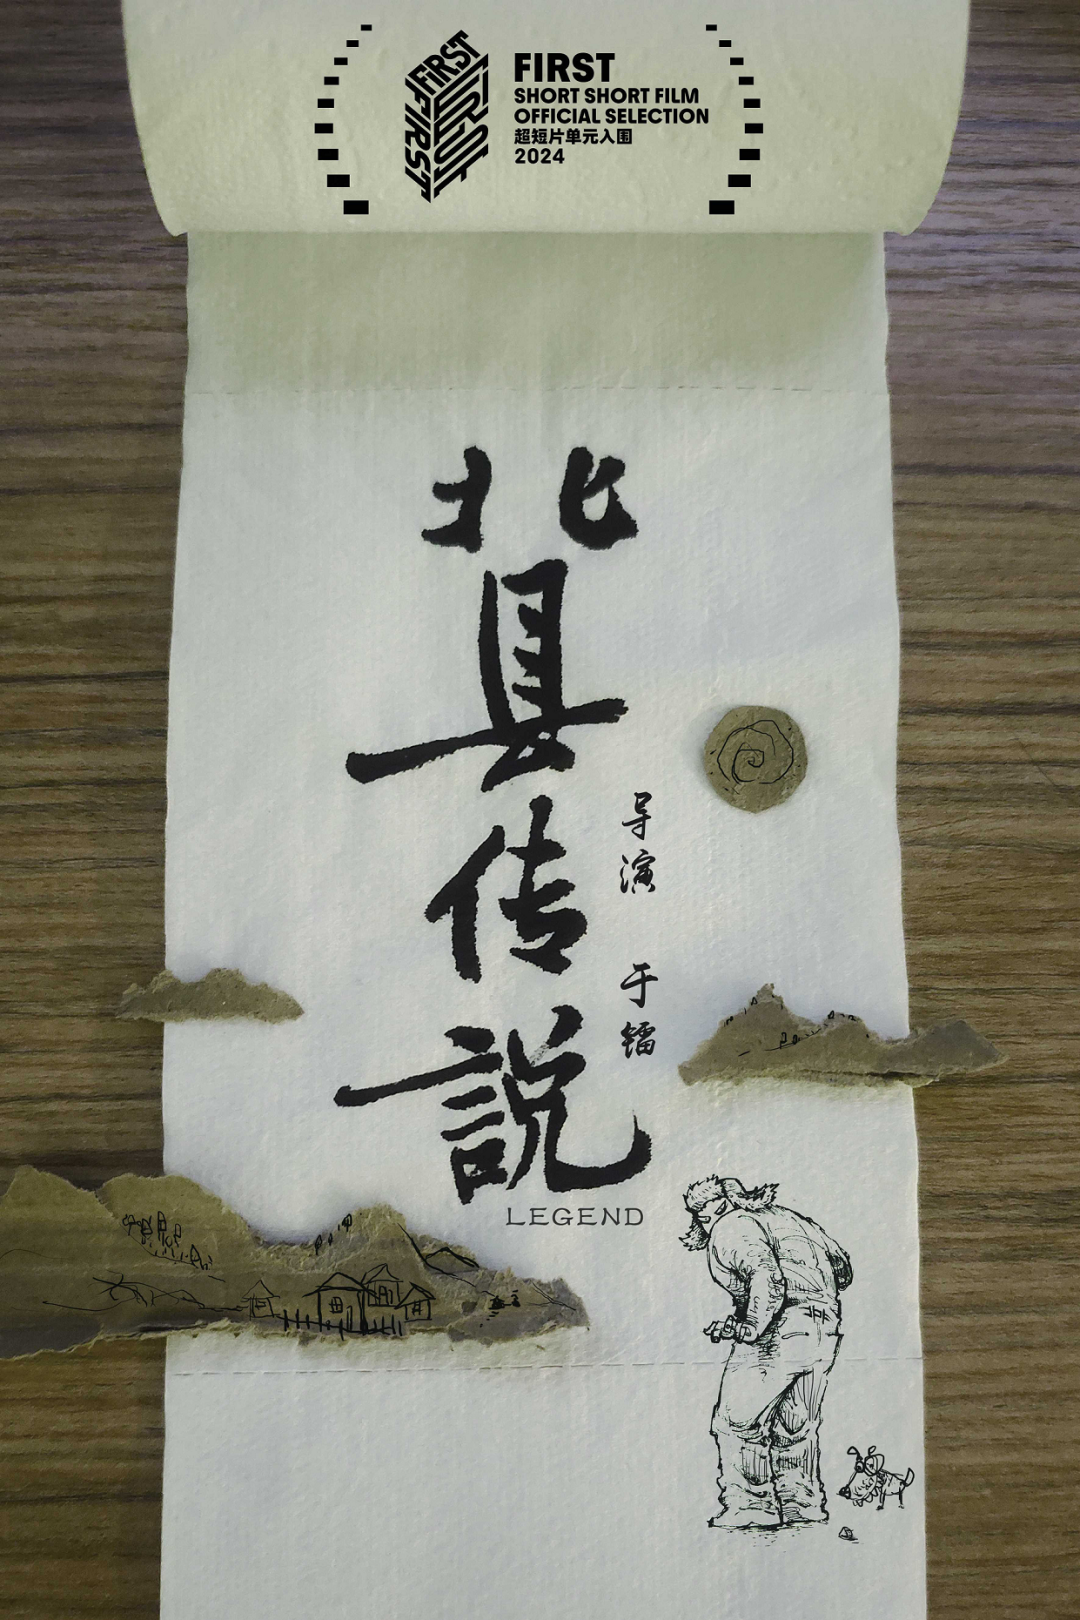 FIRST
SHORT SHORT FILM
OFFICIAL SELECTION
超短片单元入围
2024
北县传説
导演 于镭
LEGEND